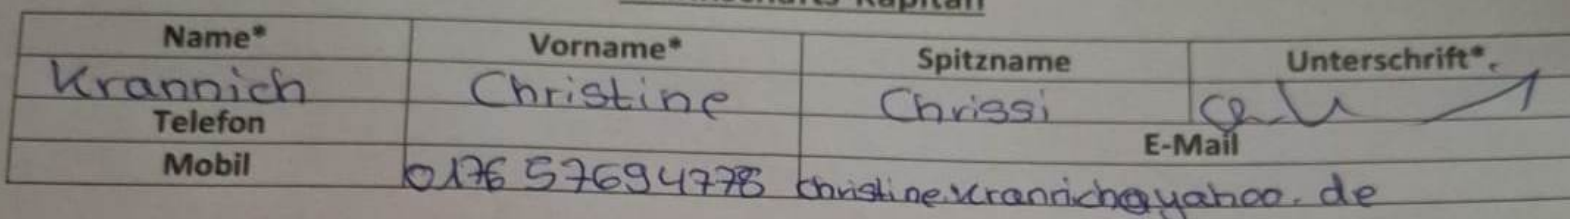 Name* Vorname* Spitzname Unterschrift*
Krannich Christine Chrissi
Telefon E-Mail
Mobil 0176 57694778 christine.krannich@yahoo.de